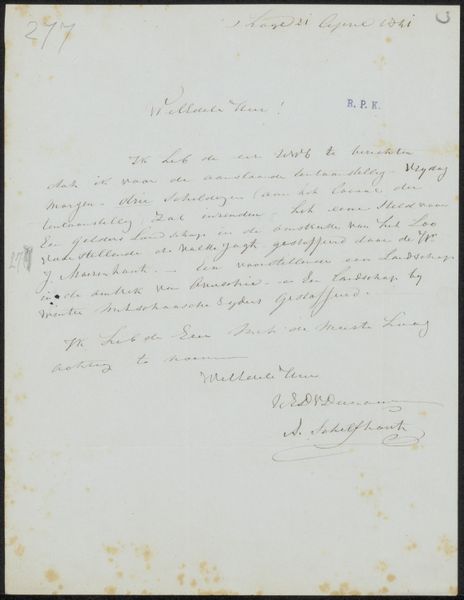 277
s Hage 21 April 1841
R. P. K.
WelEdele Heer!
Ik heb de eer UWE te berichten
dat ik voor de aanstaande tentoonstelling Vrydag
morgen drie Schilderyen (aan het locaal der
tentoonstelling) Zal inzenden, het eene Steld voor
Een Gelders Landschap in de omstreek van het Loo
voorstellende de valke jagt gestoffeerd door de Hr
J. Moerenhout. Een voorstellende een Landschap
in de omtrek van en Een Landschap by
winter met Schaatsen ryders Gestoffeerd.
Ik heb de Eer met de meeste hoog
achting te noemen
WelEdele Heer
UEDWDienaar
A. Schelfhout